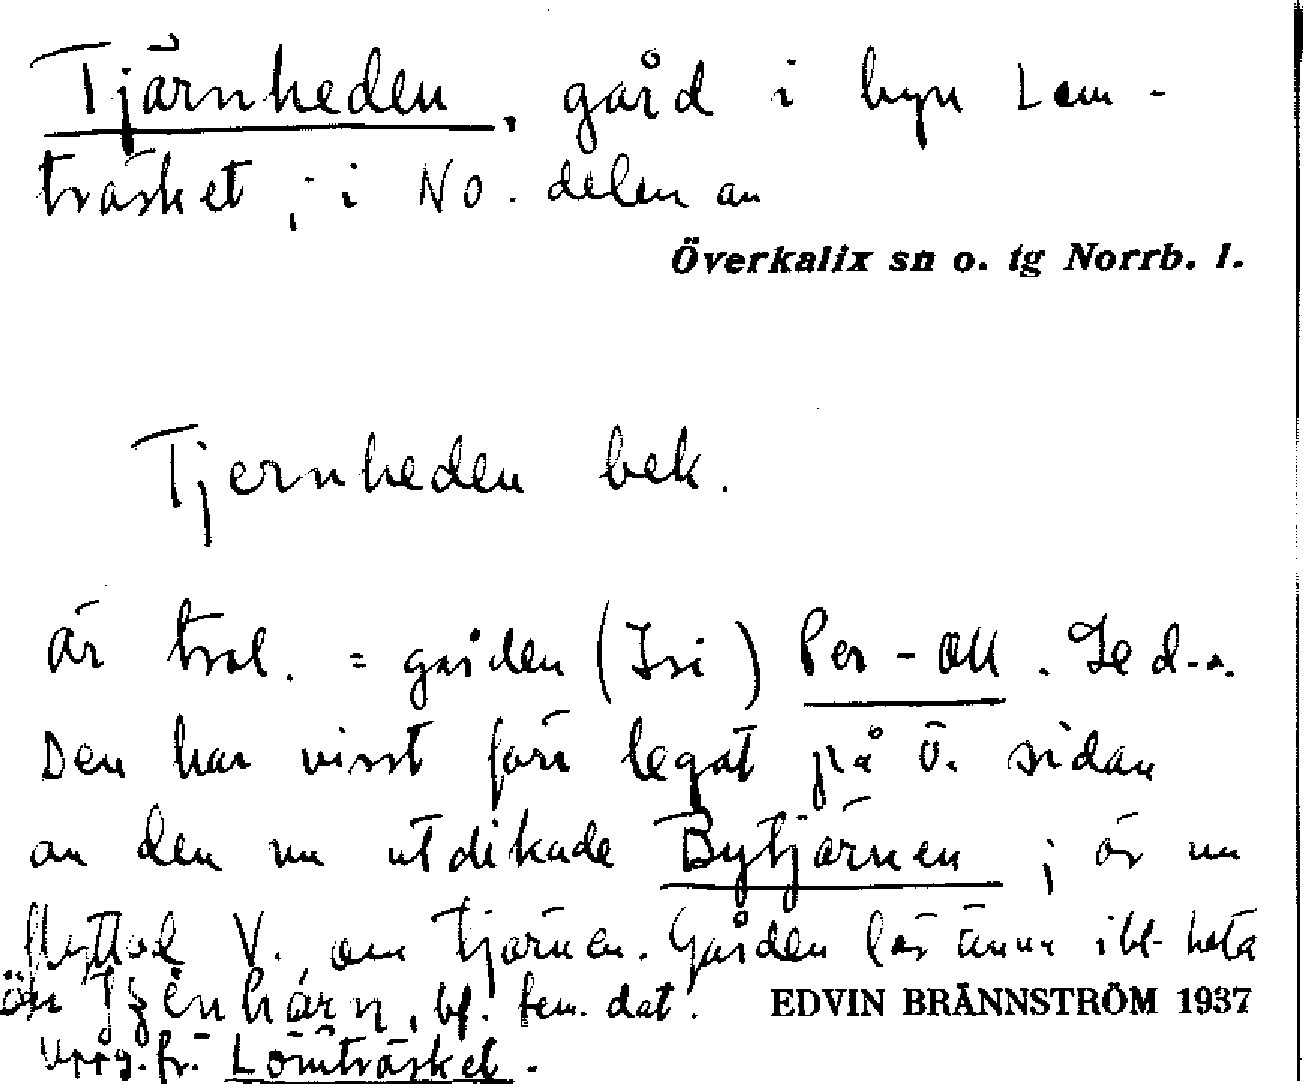 Tjärnheden, gård i byn Lom-
träsket, i NO. delen av
Överkalix sn o. tg Norrb. l.
Tjernheden bek.
är trol. = gården (Isi) Per-Oll. Se d.o.
Den har visst förr legat på ö. sidan
av den nu utdikade Bytjärnen; är nu
flyttad V. om tjärnen. Gården lär ännu ibl. heta
bf. fem. dat.
EDVIN BRÄNNSTRÖM 1937
Uppg. fr. Lomträsket.